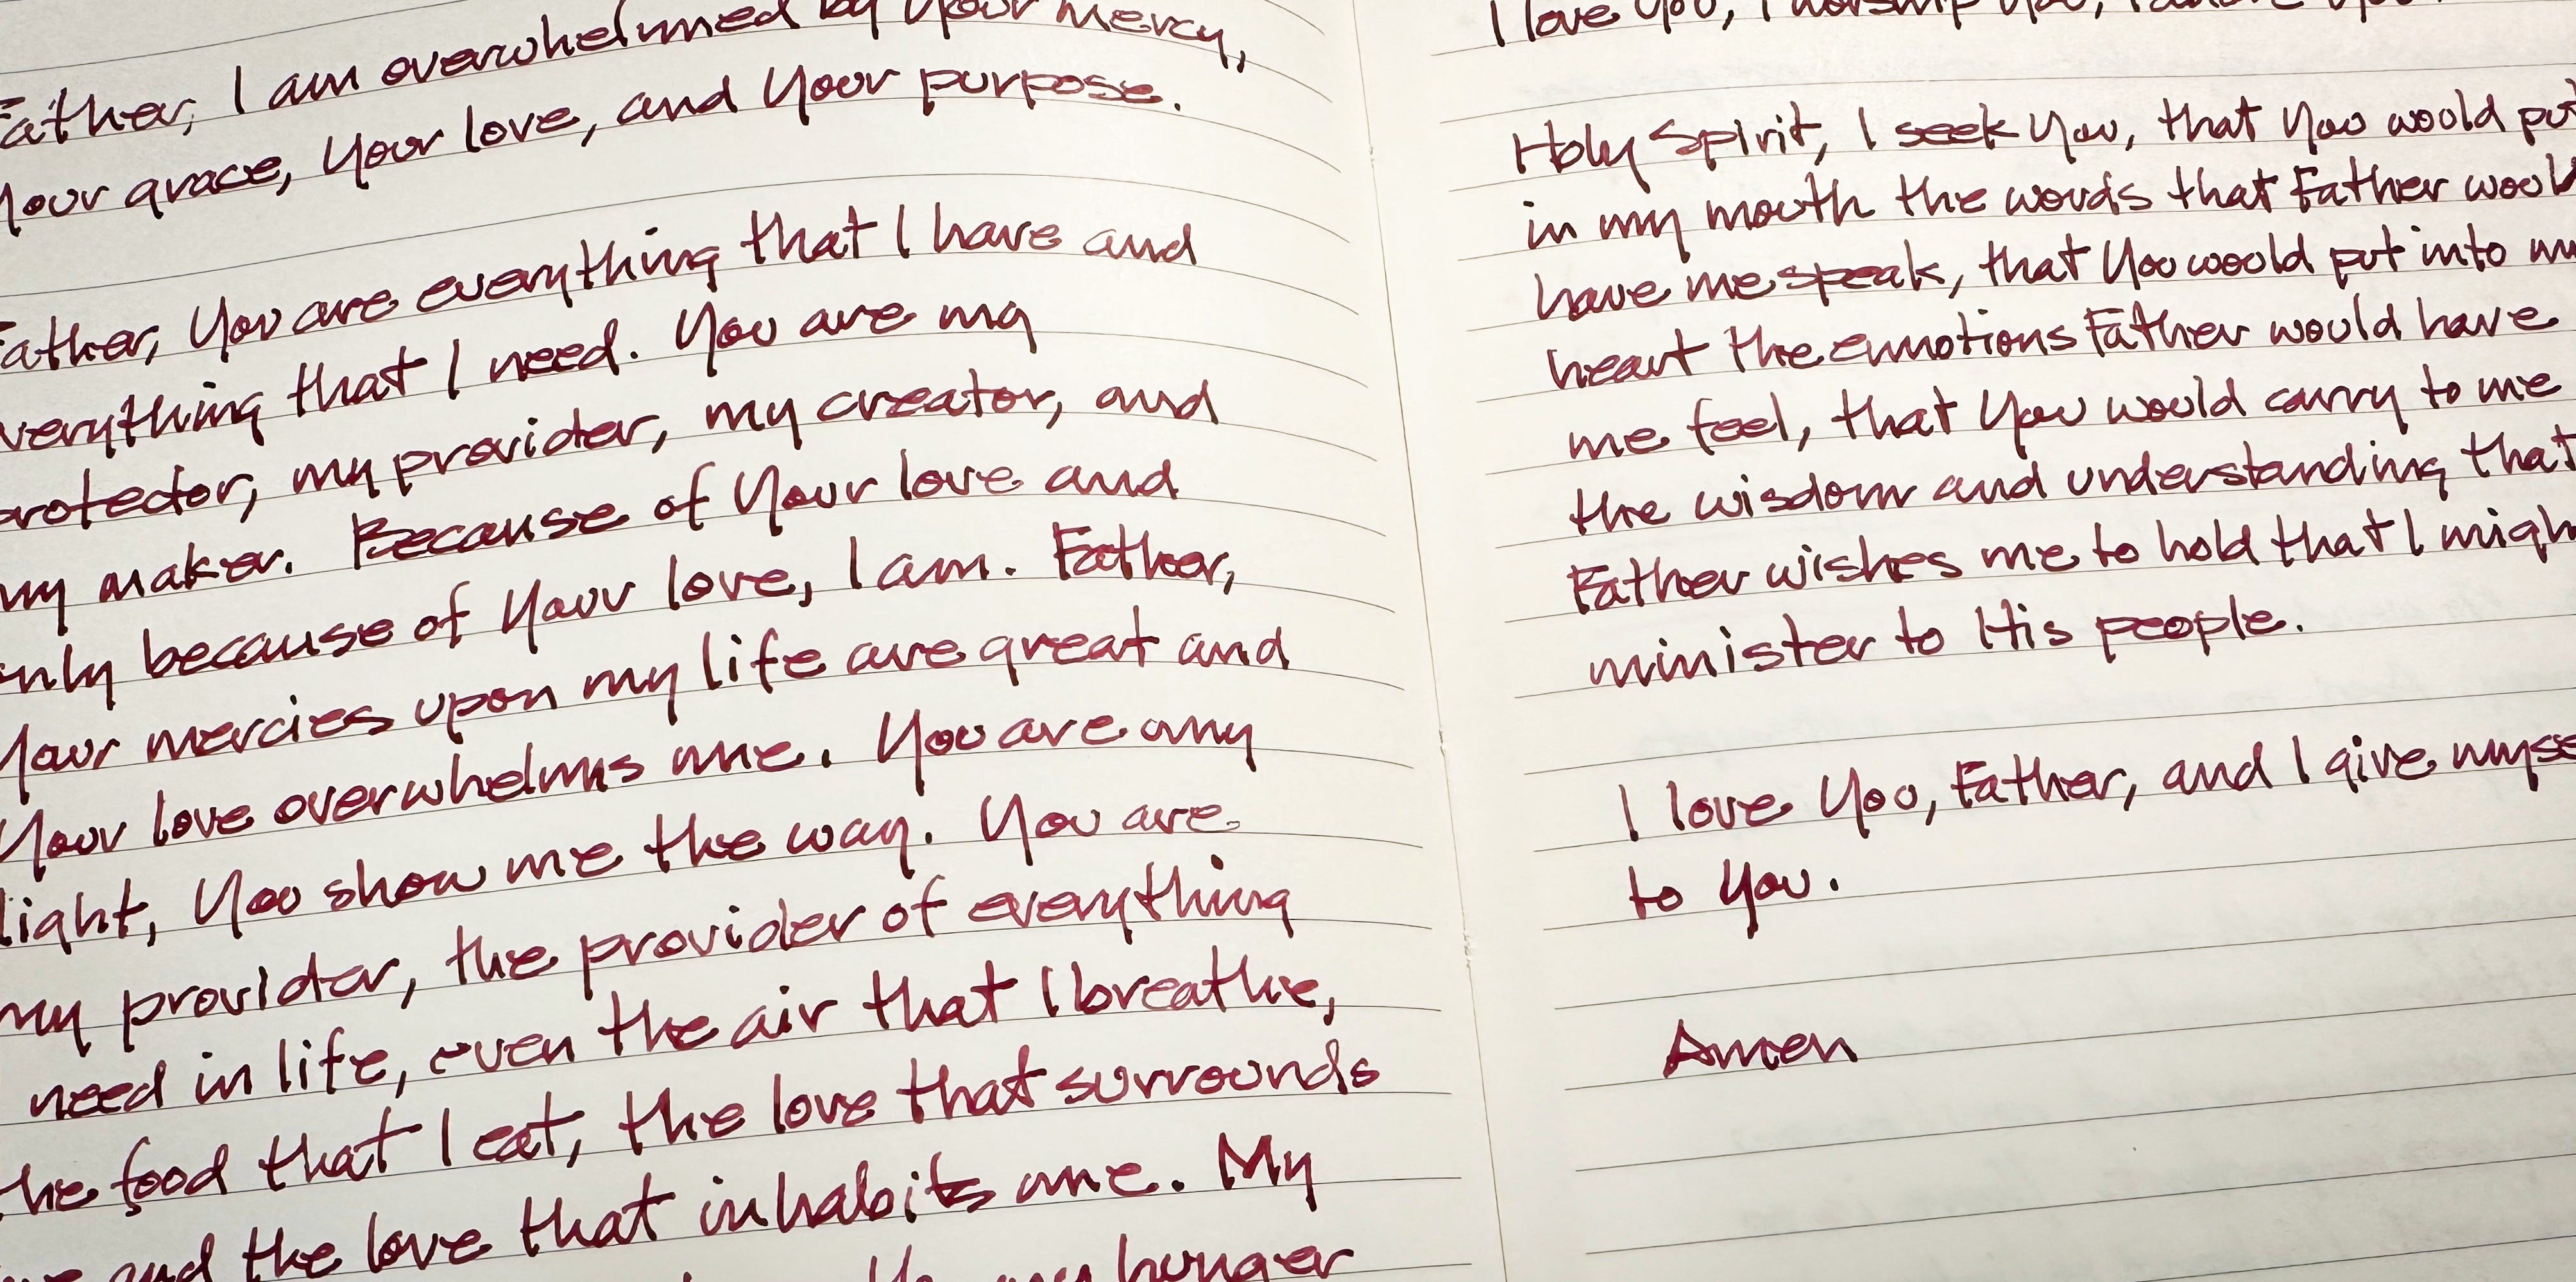 Father, I am overwhelmed by Your mercy,
Your grace, Your love, and Your purpose.
Father, You are everything that I have and
everything that I need. You are my
protector, my provider, my creator, and
my maker. Because of Your love and
only because of Your love, I am. Father,
Your mercies upon my life are great and
Your love overwhelms me. You are my
light, You show me the way. You are
my provider, the provider of everything
need in life, even the air that I breathe,
the food that I eat, the love that surrounds
and the love that inhabits me. My
my hunger
I love You, I worship You, I
Holy Spirit, I seek You, that You would put
in my mouth the words that Father would
have me speak, that You would put into my
heart the emotions Father would have
me feel, that You would carry to me
the wisdom and understanding that
Father wishes me to hold that I might
minister to His people.
I love You, Father, and I give myse
to You.
Amen